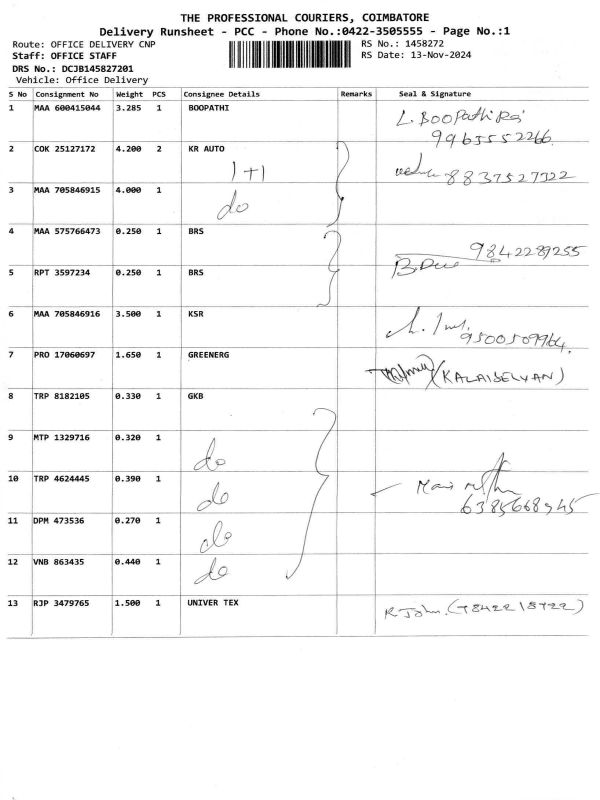 THE PROFESSIONAL COURIERS, COIMBATORE
Delivery Runsheet - PCC - Phone No.:0422-3505555 - Page No.:1
Route: OFFICE DELIVERY CNP RS No.: 1458272
Staff: OFFICE STAFF RS Date: 13-Nov-2024
DRS No.: DCJB145827201
Vehicle: Office Delivery
S No Consignment No Weight PCS Consignee Details Remarks Seal & Signature
1 MAA 600415044 3.285 1 BOOPATHI L. Boopathi
9963552266
2 COK 25127172 4.200 2 KR AUTO
1+1 8837527322
3 MAA 705846915 4.000 1
do
4 MAA 575766473 0.250 1 BRS 9842289255
5 RPT 3597234 0.250 1 BRS
6 MAA 705846916 3.500 1 KSR
9500509964.
7 PRO 17060697 1.650 1 GREENERG (KALAISELVAN)
8 TRP 8182105 0.330 1 GKB
9 MTP 1329716 0.320 1
do
10 TRP 4624445 0.390 1
do 6385668945
11 DPM 473536 0.270 1
do
12 VNB 863435 0.440 1
do
13 RJP 3479765 1.500 1 UNIVER TEX R John. (9842215722)